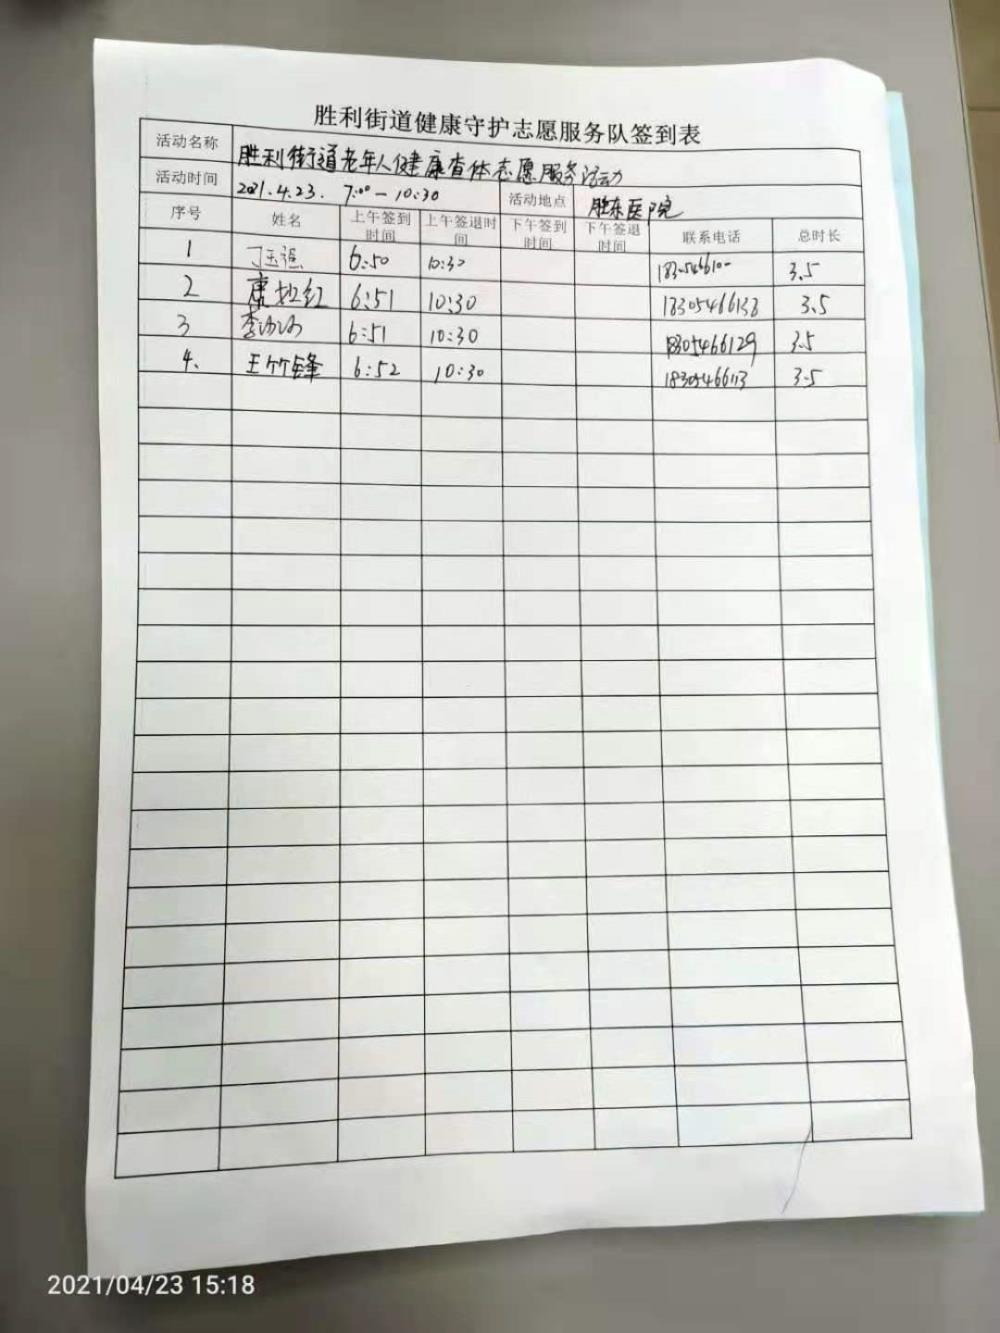 胜利街道健康守护志愿服务队签到表
活动名称 胜利街道老年人健康查体志愿服务活动
活动时间 2021.4.23. 7:00—10:30 活动地点 胜东医院
序号 姓名 上午签到时间 上午签退时间 下午签到时间 下午签退时间 联系电话 总时长
1 6:50 10:30 3.5
2 6:51 10:30 18305466138 3.5
3 6:51 10:30 18305466129 3.5
4. 王竹锋 6:52 10:30 18305466113 3.5
2021/04/23 15:18